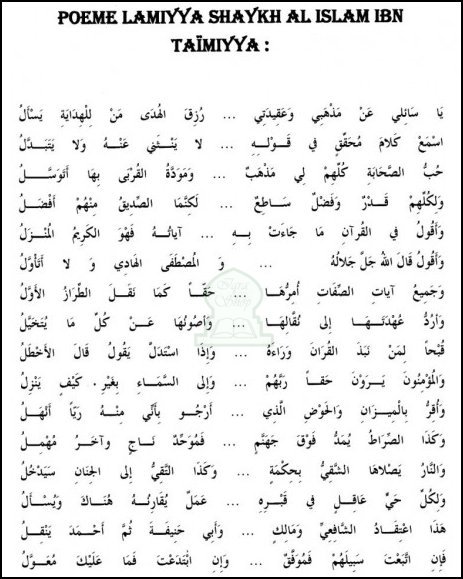 POEME LAMIYYA SHAYKH AL ISLAM IBN
TAÏMIYYA :
يَا سَائِلِي عَنْ مَذْهَبِي وَعَقِيدَتِي ... رُزِقَ الْهُدَى مَنْ لِلْهِدَايَةِ يَسْأَلُ
اسْمَعْ كَلَامَ مُحَقِّقٍ فِي قَوْلِهِ ... لا يَنْثَنِي عَنْهُ وَلا يَتَبَدَّلُ
حُبُّ الصَّحَابَةِ كُلِّهِمْ لِي مَذْهَبٌ ... وَمَوَدَّةُ الْقُرْبَى بِهَا أَتَوَسَّلُ
وَلِكُلِّهِمْ قَدْرٌ وَفَضْلٌ سَاطِعٌ ... لَكِنَّمَا الصِّدِّيقُ مِنْهُمْ أَفْضَلُ
وَأَقُولُ فِي الْقُرْآنِ مَا جَاءَتْ بِهِ ... آيَاتُهُ فَهْوَ الْكَرِيمُ الْمُنْزَلُ
وَأَقُولُ قَالَ اللهُ جَلَّ جَلَالُهُ ... وَ الْمُصْطَفَى الْهَادِي وَ لا أَتَأَوَّلُ
وَجَمِيعُ آيَاتِ الصِّفَاتِ أُمِرُّهَا ... حَقًّا كَمَا نَقَلَ الطِّرَازُ الأَوَّلُ
وَأَرُدُّ عُهْدَتَهَا إِلَى نُقَّالِهَا ... وَأَصُونُهَا عَنْ كُلِّ مَا يُتَخَيَّلُ
قُبْحًا لِمَنْ نَبَذَ الْقُرَانَ وَرَاءَهُ ... وَإِذَا اسْتَدَلَّ يَقُولُ قَالَ الأَخْطَلُ
وَالْمُؤْمِنُونَ يَرَوْنَ حَقًّا رَبَّهُمْ ... وَإِلَى السَّمَاءِ بِغَيْرِ . كَيْفٍ يَنْزِلُ
وَأُقِرُّ بِالْمِيزَانِ وَالْحَوْضِ الَّذِي ... أَرْجُو بِأَنِّي مِنْهُ رَيًّا أَنْهَلُ
وَكَذَا الصِّرَاطُ يُمَدُّ فَوْقَ جَهَنَّمٍ ... فَمُوَحِّدٌ نَاجٍ وَآخَرُ مُهْمَلُ
وَالنَّارُ يَصْلَاهَا الشَّقِيُّ بِحِكْمَةٍ ... وَكَذَا التَّقِيُّ إِلَى الْجِنَانِ سَيَدْخُلُ
وَلِكُلِّ حَيٍّ عَاقِلٍ فِي قَبْرِهِ ... عَمَلٌ يُقَارِنُهُ هُنَاكَ وَيُسْأَلُ
هَذَا اعْتِقَادُ الشَّافِعِيِّ وَمَالِكٍ ... وَأَبِي حَنِيفَةَ ثُمَّ أَحْمَدَ يَنْقُلُ
فَإِنِ اتَّبَعْتَ سَبِيلَهُمْ فَمُوَفَّقٌ ... وَإِنِ ابْتَدَعْتَ فَمَا عَلَيْكَ مُعَوَّلُ